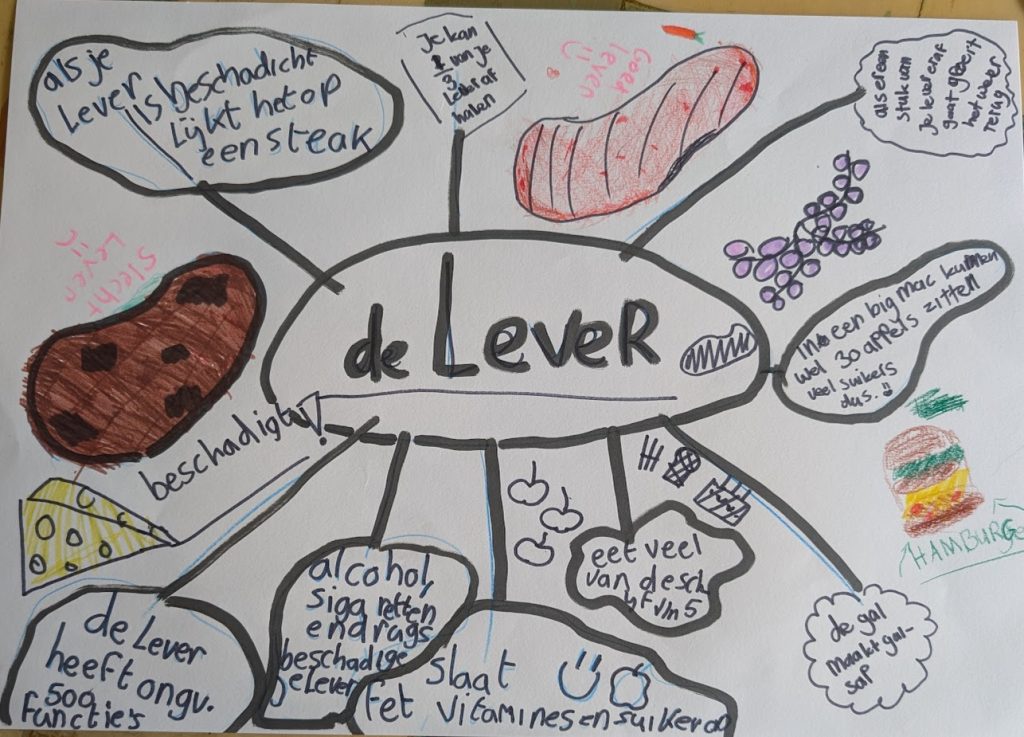 als je
Lever is beschadicht
Lijkt het op
een steak
Je kan
van je
Lever af
halen
Goed
Lever
als er een
stuk van
je lever af
gaat groeit
het weer
terug
Slecht
Lever
de Lever
in een big mac kunnen
wel 30 appels zitten
veel suikers
dus.
beschadigtu!
HAMBURGE
de Lever
heeft ongv.
500
functie's
alcohol,
sigaretten
en drags
beschadige
je Lever
slaat
fet vitamines en suiker op
eet veel
van de sch
ijf v/n 5
de gal
maakt gal-
sap